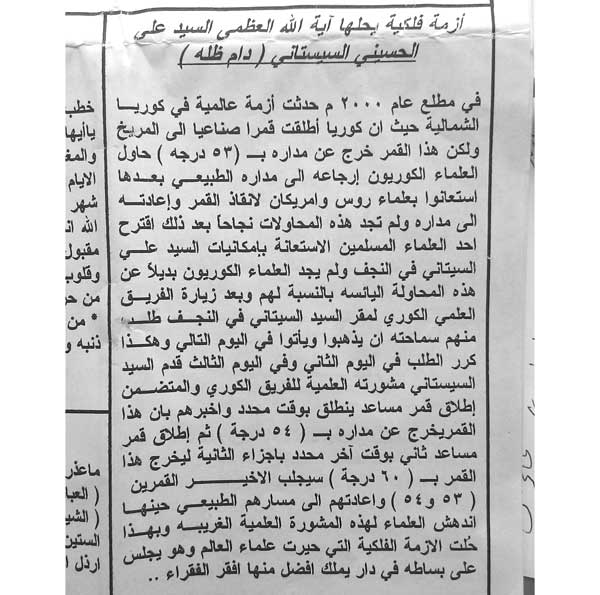 أزمة فلكية يحلها آية الله العظمى السيد علي
الحسيني السيستاني ( دام ظله )
في مطلع عام ٢٠٠٠ م حدثت أزمة عالمية في كوريا
الشمالية حيث ان كوريا أطلقت قمرا صناعيا الى المريخ
ولكن هذا القمر خرج عن مداره بـ (٥٣ درجه ) حاول
العلماء الكوريون إرجاعه الى مداره الطبيعي بعدها
استعانوا بعلماء روس وامريكان لانقاذ القمر وإعادته
الى مداره ولم تجد هذه المحاولات نجاحاً بعد ذلك اقترح
احد العلماء المسلمين الاستعانة بإمكانيات السيد علي
السيتاني في النجف ولم يجد العلماء الكوريون بديلاً عن
هذه المحاولة اليانسه بالنسبة لهم وبعد زيارة الفريق
العلمي الكوري لمقر السيد السيتاني في النجف طلب
منهم سماحته ان يذهبوا ويأتوا في اليوم التالي وهكذا
كرر الطلب في اليوم الثاني وفي اليوم الثالث قدم السيد
السيستاني مشورته العلمية للفريق الكوري والمتضمن
إطلاق قمر مساعد ينطلق بوقت محدد واخبرهم بان هذا
القمريخرج عن مداره بـ ( ٥٤ درجة ) ثم إطلاق قمر
مساعد ثاني بوقت آخر محدد باجزاء الثانية ليخرج هذا
القمر بـ ( ٦٠ درجة ) سيجلب الاخير القمرين
( ٥٣ و ٥٤ ) وإعادتهم الى مسارهم الطبيعي حينها
اندهش العلماء لهذه المشورة العلمية الغريبه وبهذا
حُلت الازمة الفلكية التي حيرت علماء العالم وهو يجلس
على بساطه في دار يملك افضل منها افقر الفقراء ..
خطب
ياأيها
والمغ
الايام
شهر
الله ان
مقبول
وقلوب
من حر
* من
ذنبه و
ماعذر
( العبا
( الشي
الستين
ارذل ا